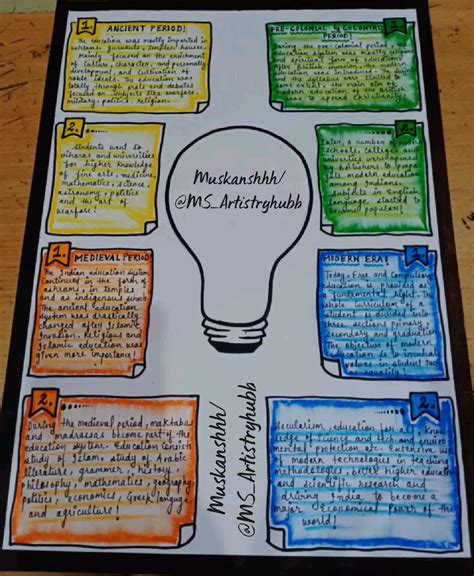 1. ANCIENT PERIOD!
The education was mostly imparted in
ashrams, gurukuls, temples, houses.
Mainly focused on the enrichment
of culture, character, and personality
development, and cultivation of
noble ideals. The education was
totally through orals and debates
focused on subjects like warfare,
military, politics, religion.
2.
Students went to
viharas and universities
for higher knowledge
of fine arts, medicine,
mathematics, science,
astronomy, politics
and the art of
warfare!
1. MEDIEVAL PERIOD!
The Indian education system
continued in the form of
ashrams, in temples
and as indigenous schools
The ancient education
system was drastically
changed after Islamic
Invasion. Religious and
Islamic education was
given more importance!
2.
During the medieval period, maktabs
and madrassas become part of the
education system. Education consists
study of Islam, study of Arabic
literature, grammer, history
philosophy, mathematics, geography,
politics, economics, Greek languge
and agriculture!
1. PRE-COLONIAL & COLONIAL
PERIOD!
During the pre-colonial period
education system was mostly religious
and spiritual form of education
after British invasion, modern
education was introduced. The
the syllabus limited
some extent, the main aim of
modern education of the British
was to spread christianity.
2.
Later, a number of
schools, colleges and
universities were opened
by Britishers to
modern education
among Indians.
subjects in English
language started to
become popular!
1. MODERN ERA!
Today, Free and Compulsory
education is provided as
a fundamental right. The
whole curriculum of a
student is divided into
three sections primary,
secondary and graduation
The objective of modern
education is to
values in student such
as equality!
2.
Secularism, education for all, Know
ledge of Science and tech and environ
mental protection etc. Extensive use
modern technologies in teaching
methodologies, better higher education
and scientific research and
driving India to become a
major Economical power of the
world!
Muskanshhh/
@MS_Artistryhubb
Muskanshhh/
@MS_Artistryhubb